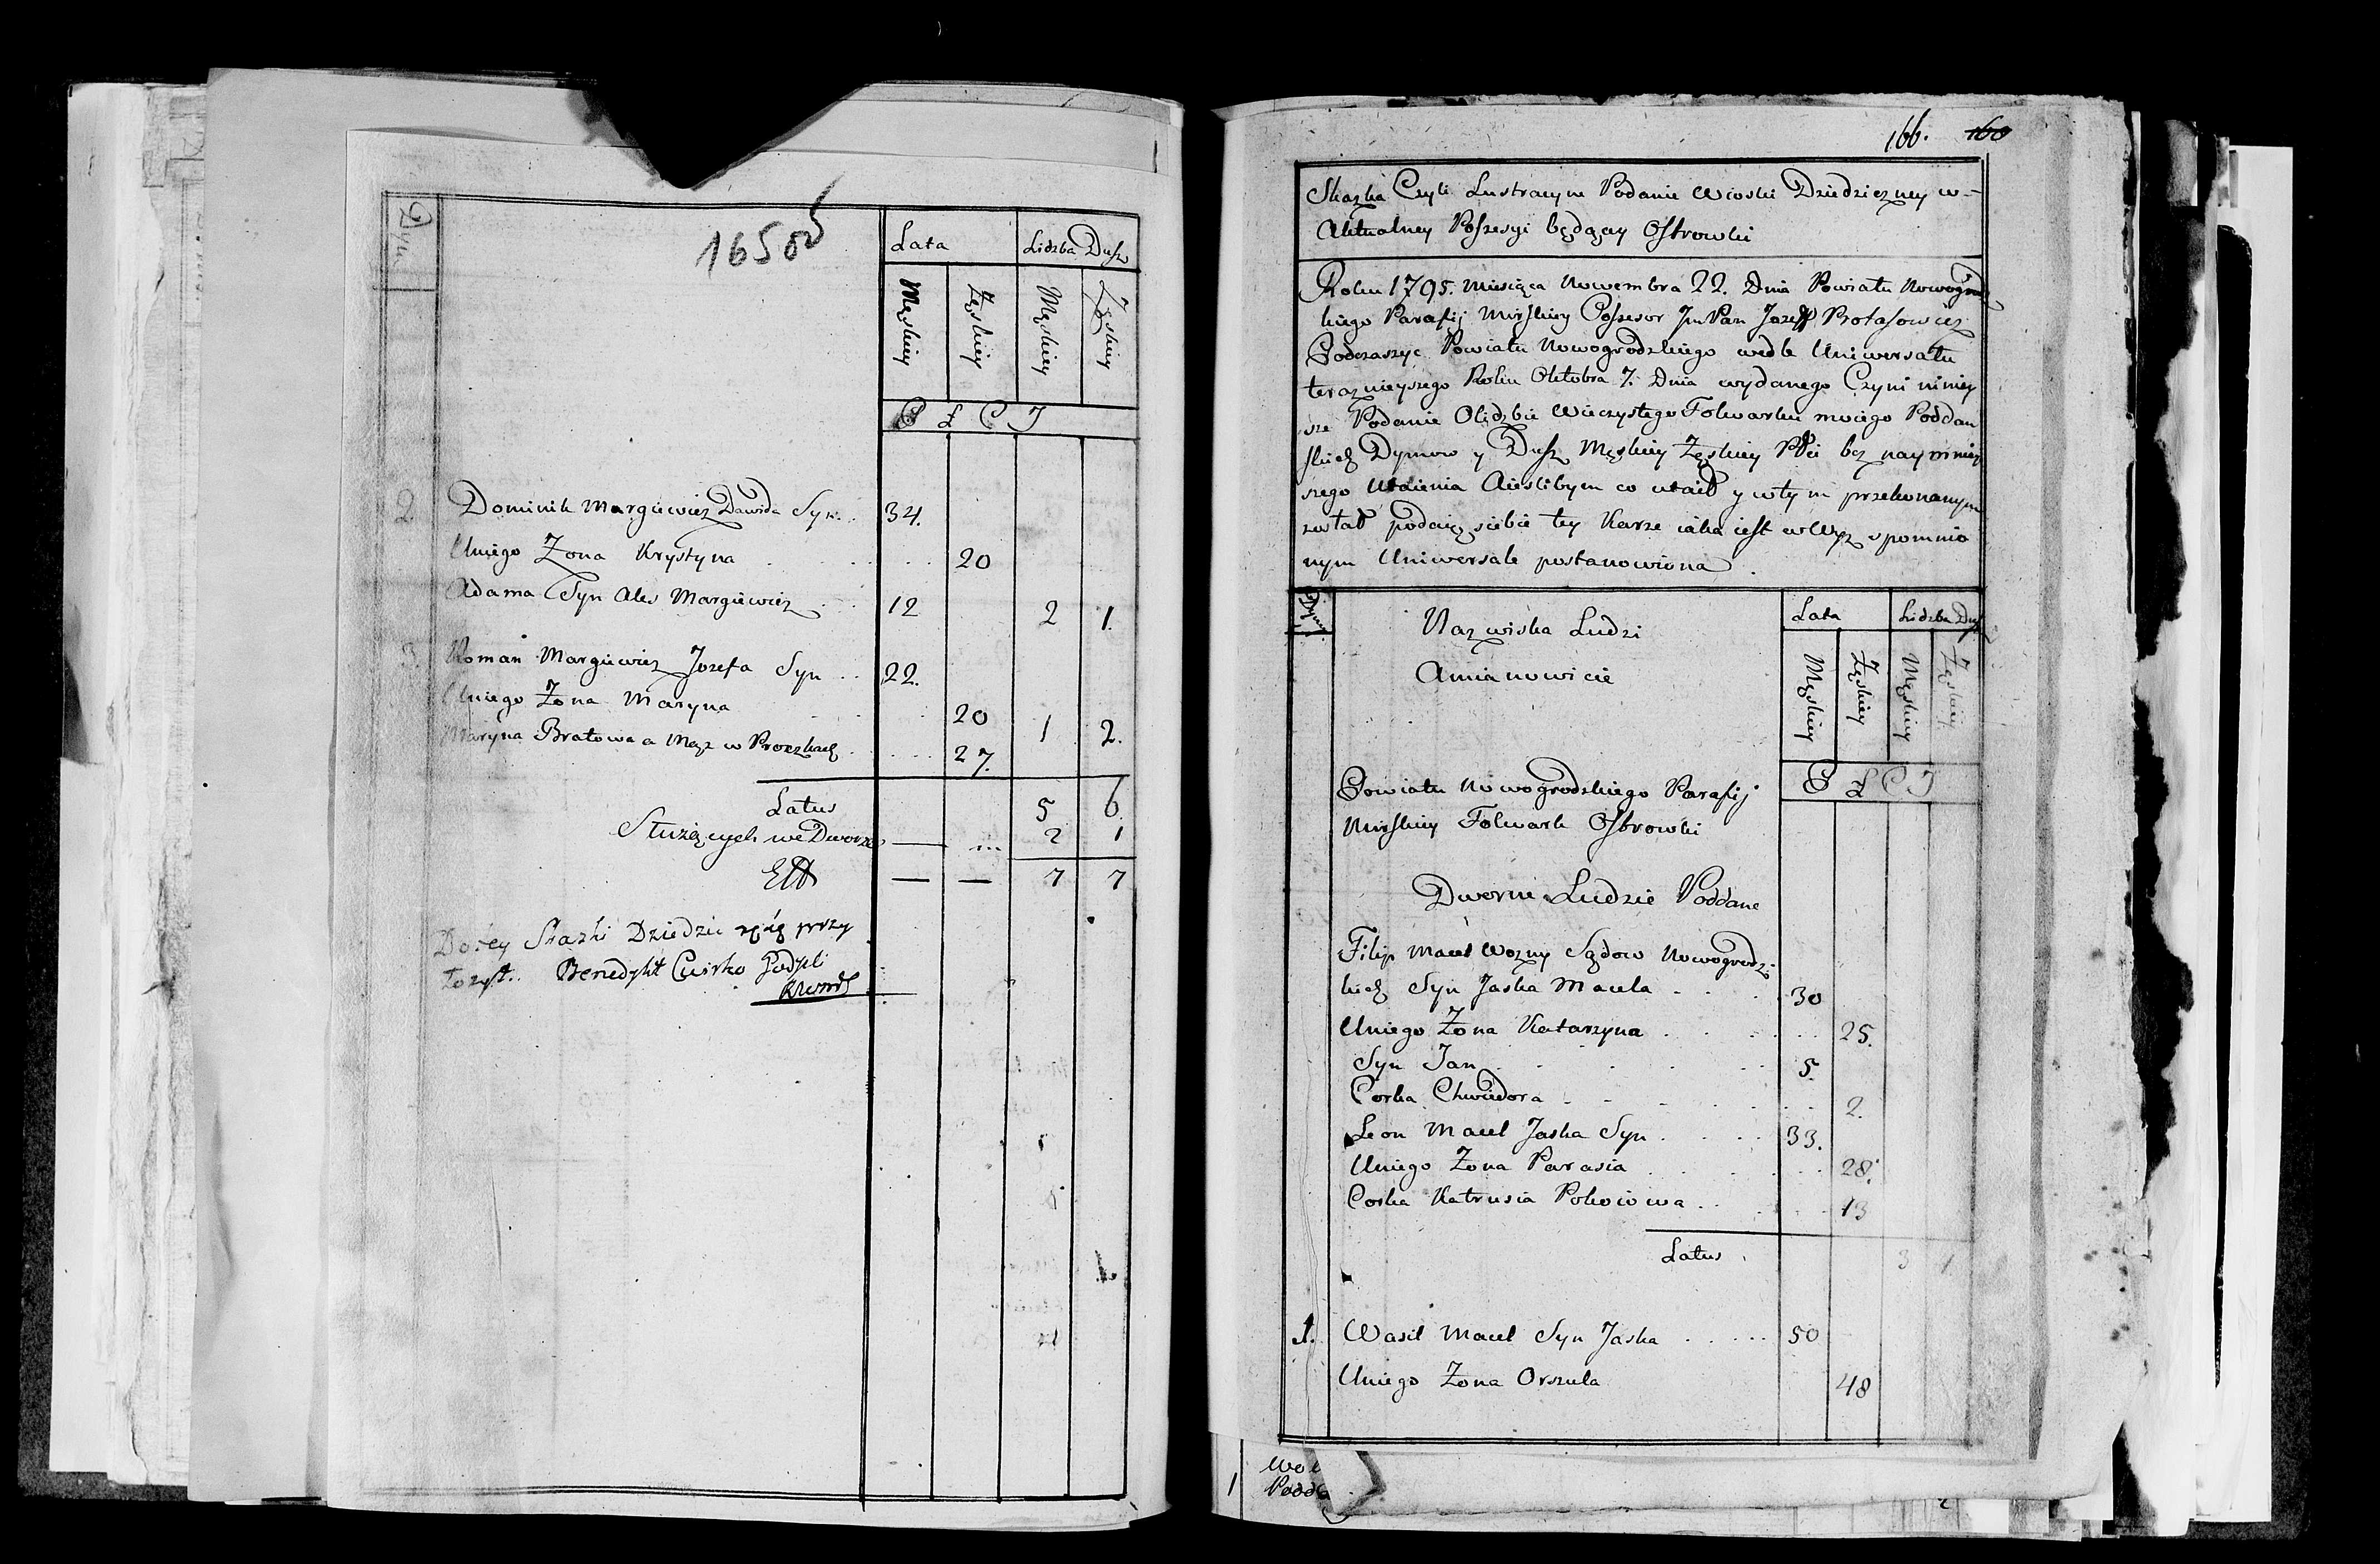 Dym
165 od
Lata Lidzba Dusz
Męskiey Zęskiey Męskiey Zęskiey
P Ł C I
2 Dominik Margiewicz Dawida Syn 34.
Uniego Zona Krystyna 20
Adama Syn Ales Margiewicz 12 2 1.
3. Roman Margiewicz Jozefa Syn 22.
Uniego Zona Maryna 20 1 2.
Maryna Bratowa a Mąz w Proczkach 27.
Latus 5 6.
Służących we Dworze 2 1
7 7
Do tey Skazki Dziedzic rękę przy
łozył. Benedykt
166. 160
Skazka Czyli Lustracyine Podanie Wioski Dziedziczney w
Aktualney Possesyi będącey Ostrowki
Roku 1795. Miesiąca Nowembra 22. Dnia Powiatu Nowogrodz
kiego Parafij Mirskiey Possesor Jm Pan Jozeff Protasowicz
Podczaszyc Powiatu Nowogrodzkiego wedle Uniwersału
teraznieyszego Roku Oktobra 7. Dnia wydanego Czyni niniey
sze Podanie Olidzbie Wieczystego Folwarku moiego Poddan
skich Dymow y Dusz Męskiey Zęskiey Płci bez naymniey
szego Utaienia Aieslibẏm co utaił y wtym przekonanym
został podaię siebie tey Karze iaka iest w Wyz spomnio
nym Uniwersale postanowiona
Dymy Nazwiska Ludzi Lata Lidzba Dusz
Amianowicie
Męskiey Zęskiey Męskiey Zęskiey
P Ł C I
Powiatu Nowogrodzkiego Parafij
Mirskiey Folwark Ostrowki
Dworni Ludzie Poddane
Filip Macel Wozny Sądow Nowogrodz
kich Syn Jaska Macela 30
Uniego Zona Katarzyna 25.
Syn Jan 5.
Corka Chwiedora 2.
Leon Macel Jaska Syn 33.
Uniego Zona Parasia 28.
Corka Katrusia Pokoiowa 13
Latus 3 1
1. Wasil Macel Syn Jaska 50
Uniego Zona Orszula 48
1